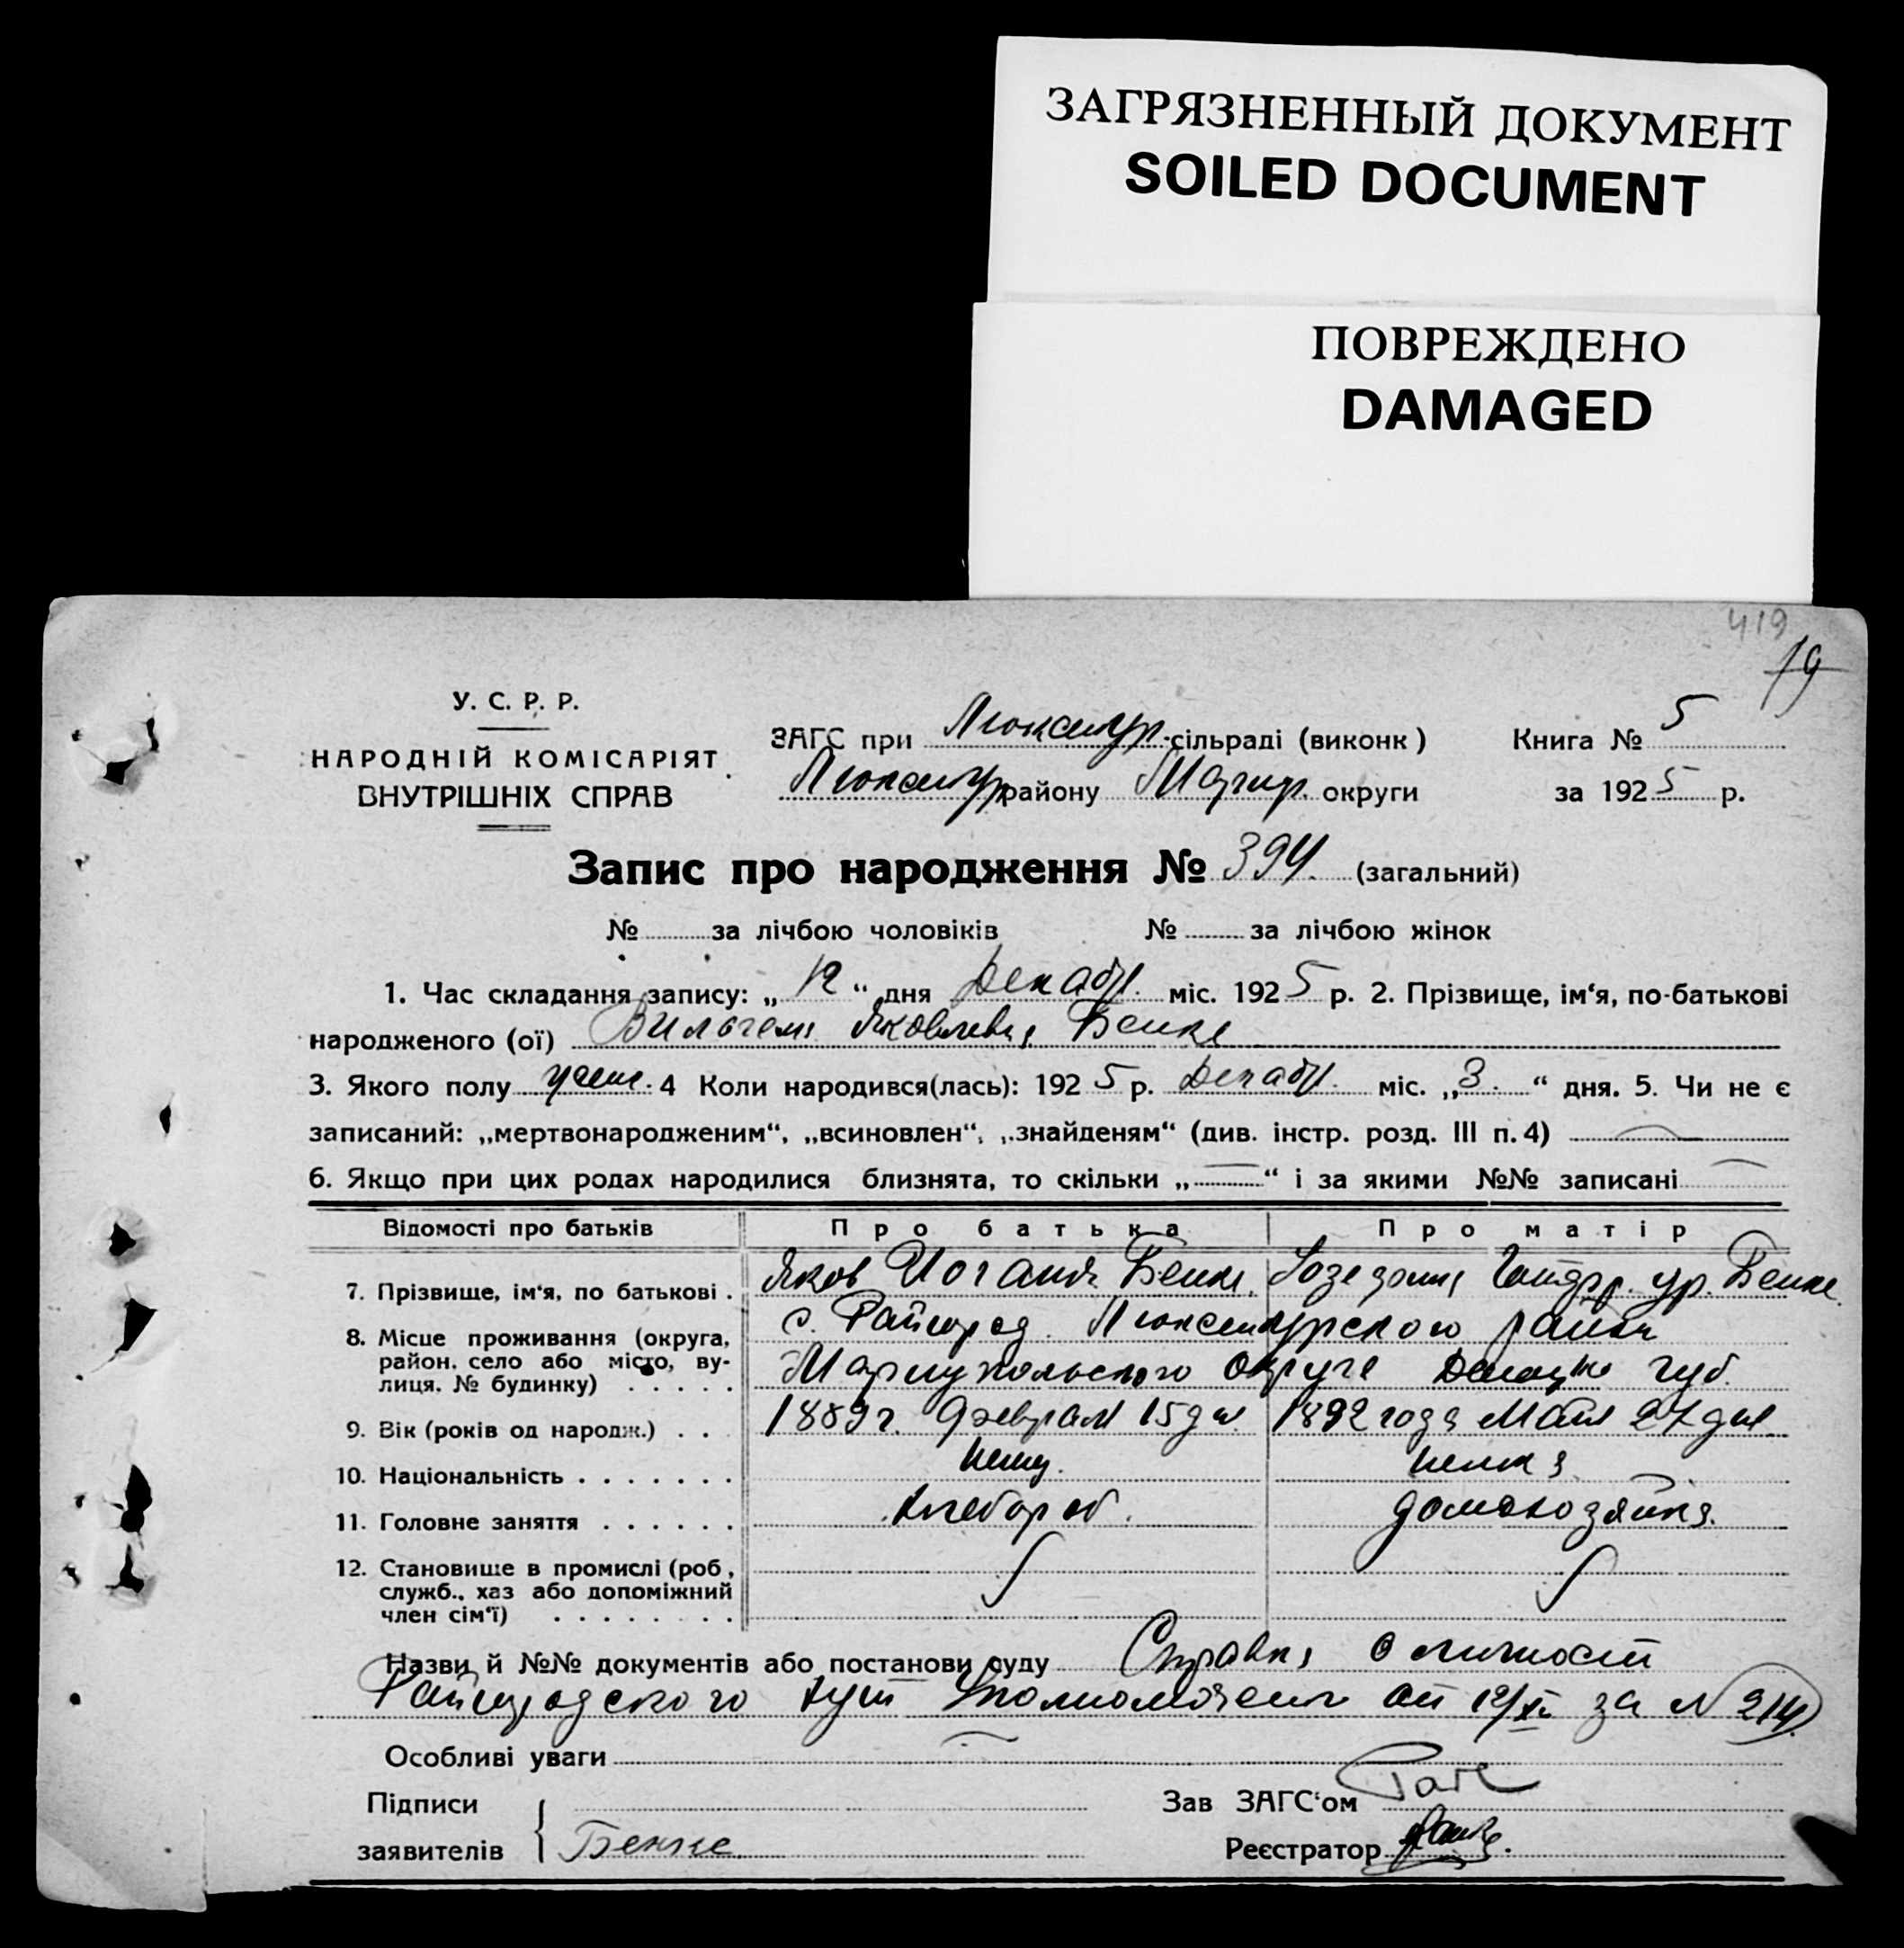 ЗАГРЯЗНЕННЫЙ ДОКУМЕНТ
SOILED DOCUMENT
ПОВРЕЖДЕНО
DAMAGED
419
19
У. С. Р. Р.
НАРОДНІЙ КОМІСАРІЯТ
ВНУТРІШНІХ СПРАВ
ЗАГС при Люксембур. сільраді (виконк) Книга № 5
Люксембур району Мариуп. округи за 1925 р.
Запис про народження № 394. (загальний)
№ за лічбою чоловіків № за лічбою жінок
1. Час складання запису: „ 12 “ дня Декабр. міс. 1925 р. 2. Прізвище, ім‘я, по-батькові
народженого (ої) Яковлевна Бенке
3. Якого полу 4 Коли народився(лась): 1925 р. Декабр. міс. „3.“ дня. 5. Чи не є
записаний: „мертвонародженим“, „всиновлен“, „знайденям“ (див. інстр. розд. III п. 4)
6. Якщо при цих родах народилися близнята, то скільки „ — “ і за якими №№ записані —
Відомості про батьків Про батька Про матір
7. Прізвище, ім‘я, по батькові . Яков Иоганн Бенке. ур. Бенке.
8. Місце проживання (округа, район, село або місто, ву-лиця, № будинку) . . . . . с. Райгород Люксембургского района
Мариупольского округе Донецко губ.
9. Вік (років од народж.) . . . 1889 г. Февраля 15 дня. 1892 года Мая 27 дня
10. Національність . . . . . . . немец. немка
11. Головне заняття . . . . . . хлебороб. домохозяйка.
12. Становище в промислі (роб, служб., хаз або допоміжний член сім‘ї) . . . . . . . .
Назви й №№ документів або постанови суду Справка о личности
Райгородского кут Уполномочен от 12/XII за N 214
Особливі уваги —
Підписи Зав ЗАГС‘ом
заявителів Бенке Реєстратор